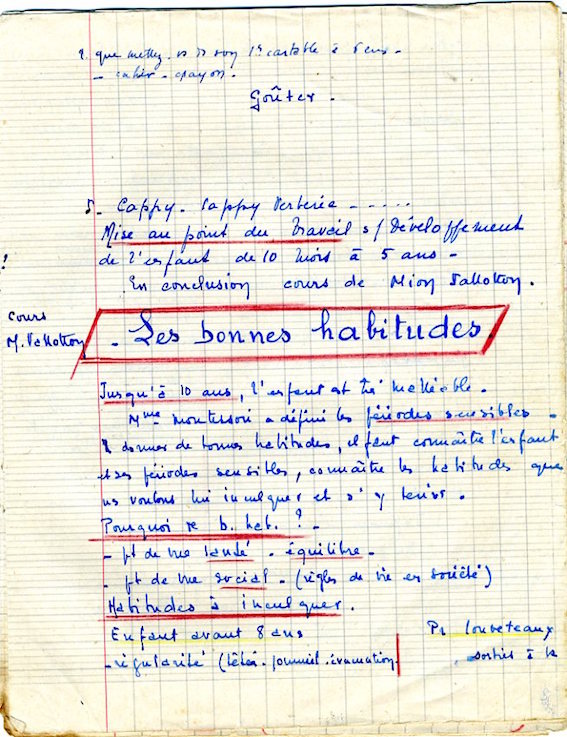 2. que mettez-vs ds son 1er cartable à 5 ans -
- cahier - crayon.
Goûter.
5 - Cappy. Cappy Verberie - - - - -
Mise au point du travail s/ Développement
de l'enfant de 10 mois à 5 ans -
En conclusion cours de Mion Vallotton.
Cours
M. Vallotton
- Les bonnes habitudes
Jusqu'à 10 ans, l'enfant est très malléable.
Mme Montessori a défini les périodes sensibles -
donner de bonnes habitudes, il faut connaître l'enfant
et ses périodes sensibles, connaître les habitudes que
ns voulons lui inculquer et s'y tenir.
Pourquoi de b. hab. ? -
- pt de vue santé - équilibre -
- pt de vue social - (règles de vie en société)
Habitudes à inculquer.
Enfant avant 8 ans
Pr louveteaux
- régularité (tétée. sommeil. évacuation
sorties à